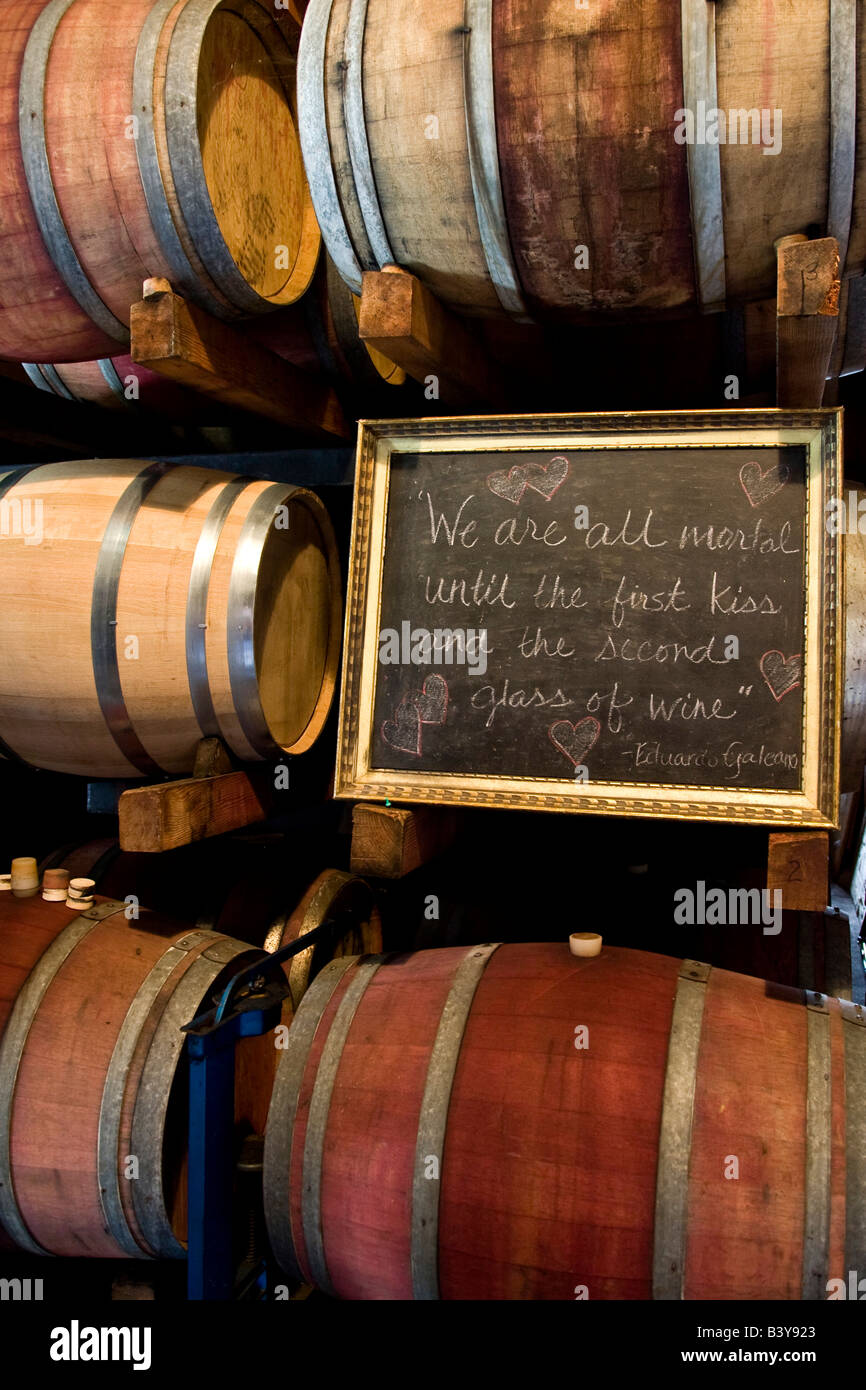 13
"We are all mortal
until the first kiss
and the second
glass of wine"
- Eduardo Galeano
2
alamy
Image ID: B3Y923
www.alamy.com